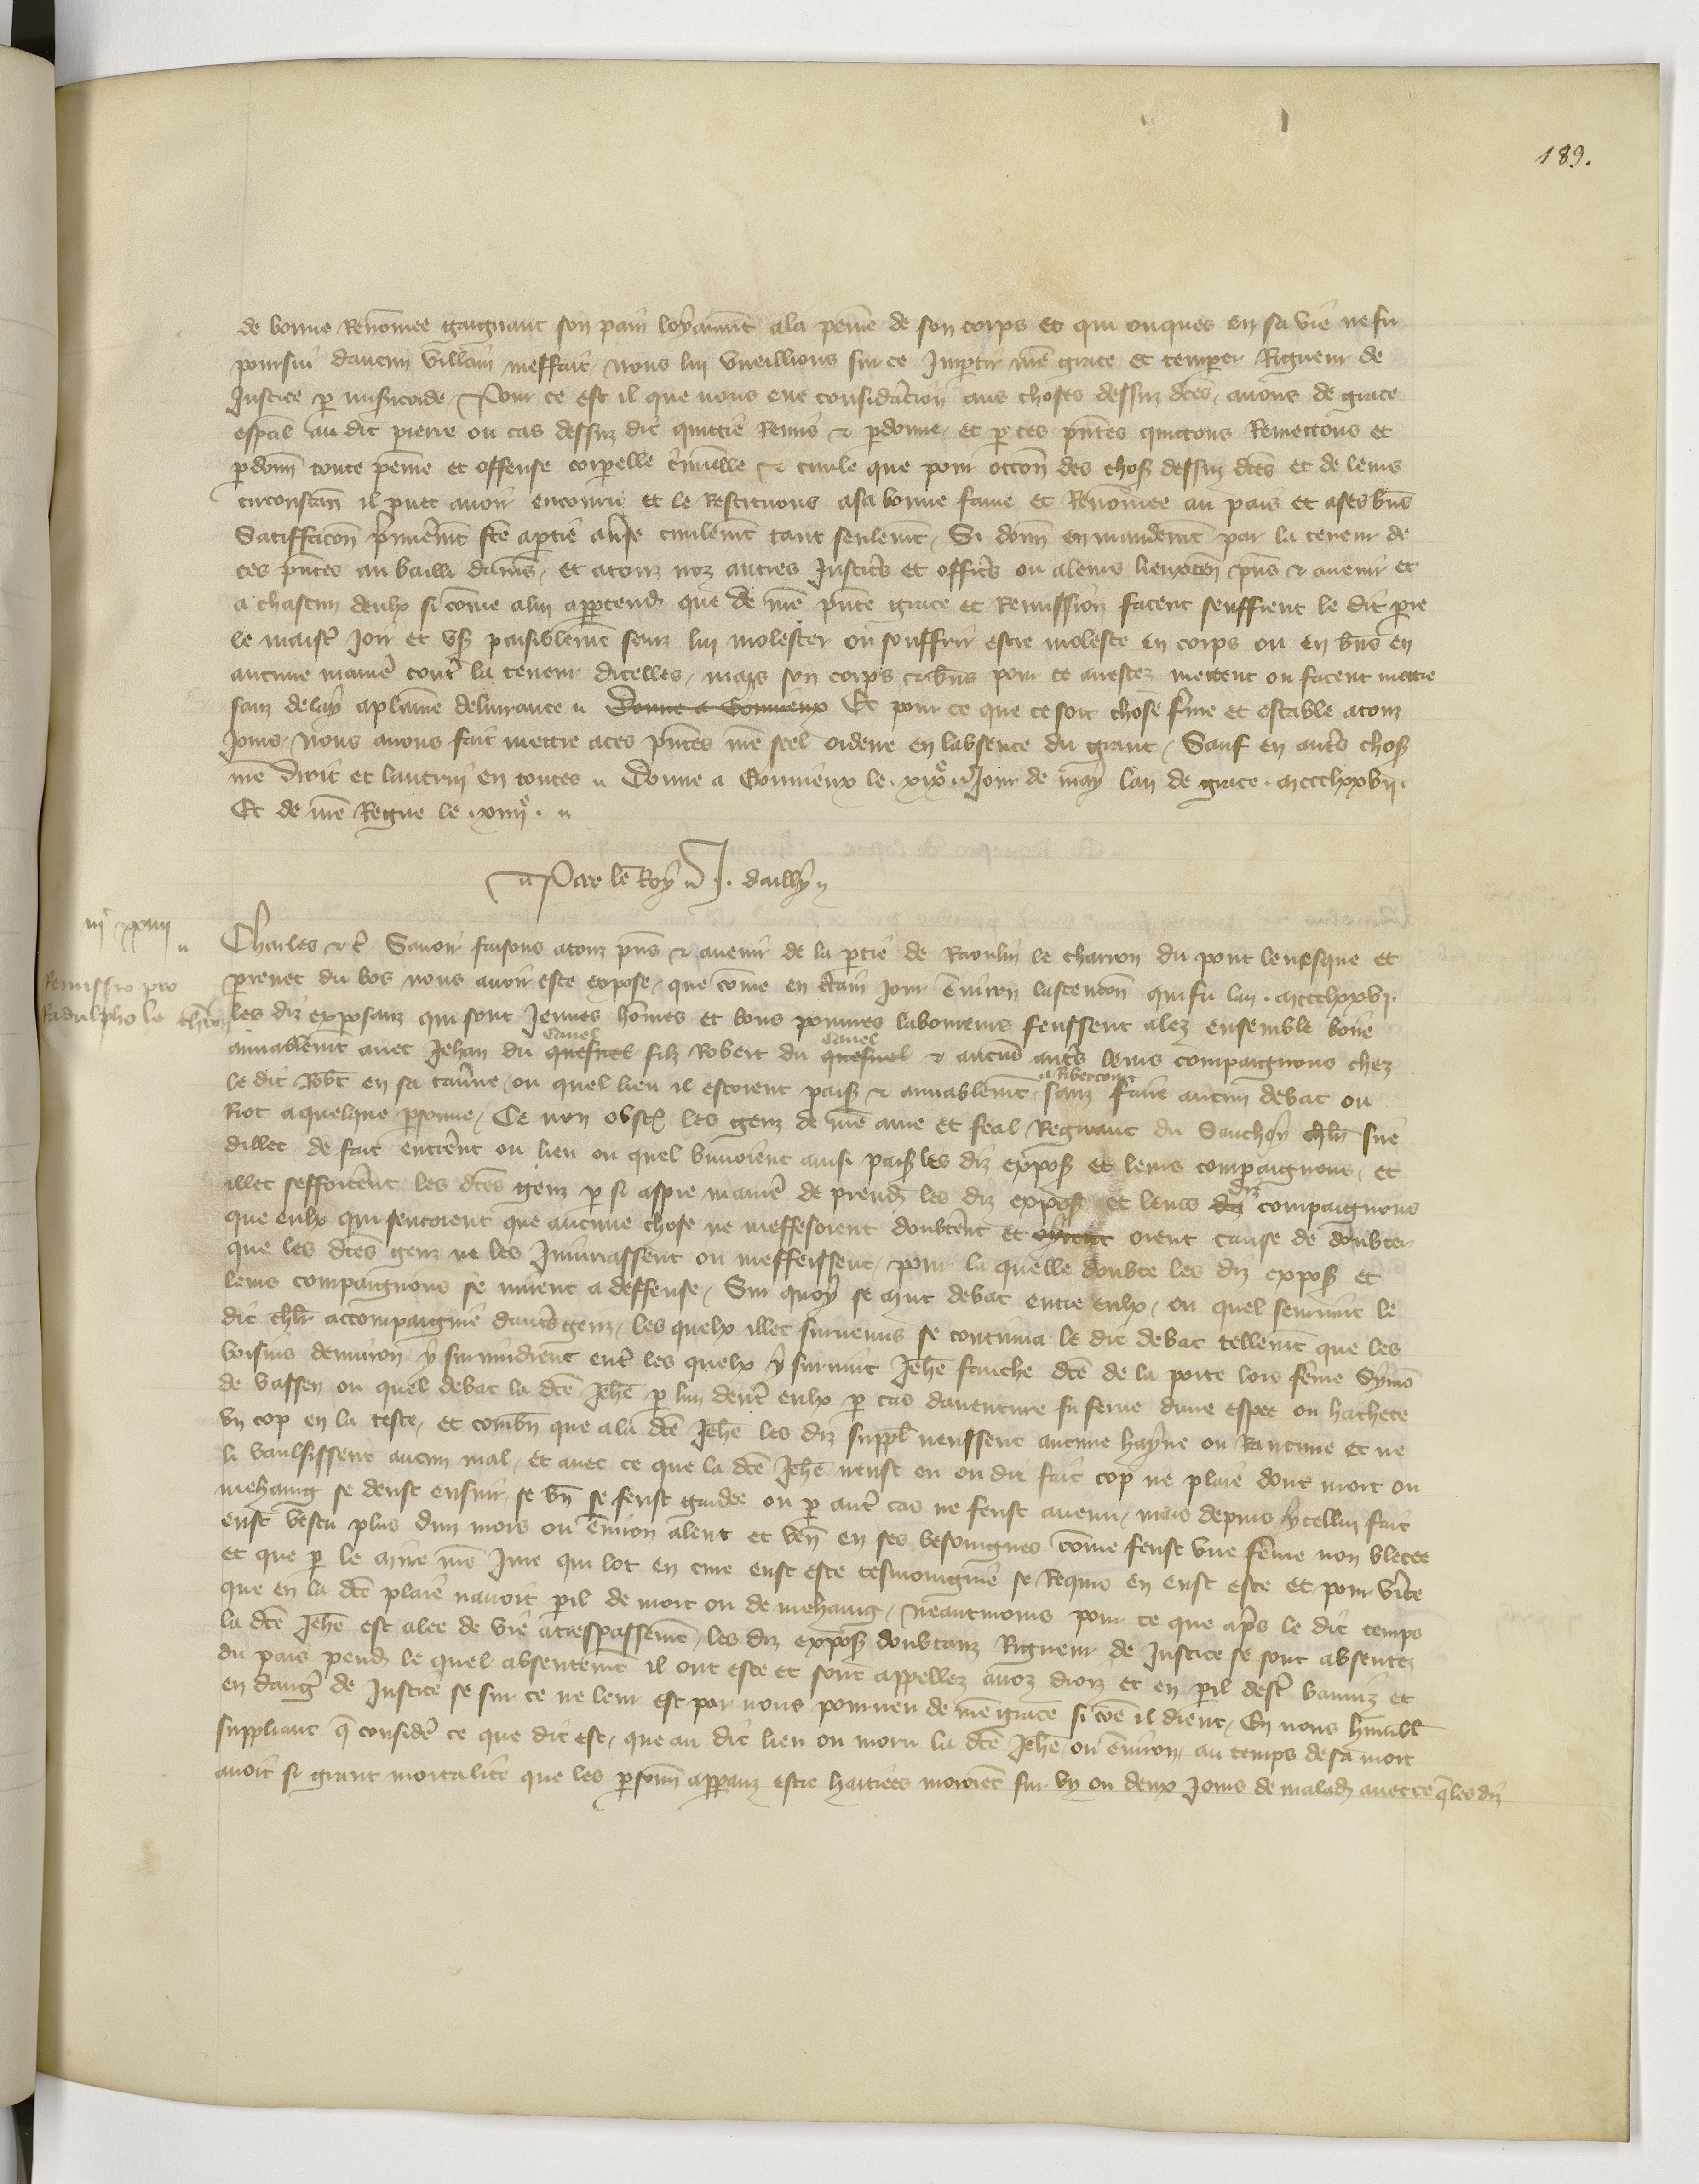 189.
de bonne Renōmee gaignant son pain loyaumt̄ ala peinē de son corps et qui onques en sa vie ne fu
poursui daucun villain meffait, nous lui vueillions sur ce Impartir nr̄e grace et temper̄ Rigueur de
Justice p misericorde, Pour ce est il que nous eue consideracion aus choses dessus dc̄es, auons de grace
esp̄al au dit pierre ou cas dessus dit quittie Remis & pdonne, et p ces pn̄tes quittons Remettons et
pdonn̄ toute peinē et offense corporelle c̄minelle & ciuile que pour occon̄ des chos̄ dessuz dc̄es et de leurs
circonstan̄ il puet auoir encouru et le Restituons asa bonne fame et Renōmee au pais et ases bn̄s
Satiffacon̄ p̄mierem̄t fc̄e aptie ciuilemt̄ tant seulemt̄, Si donn̄ en mandemt̄ par la teneur de
ces pn̄tes au bailli damiēs, et atouz noz autres Justic̄s et offic̄s ou aleurs lieuxten̄ pn̄s & auenir et
a chascun deulx si cōme alui apptend̄ que de nr̄e pn̄te grace et Remission facent seuffrent le dit p̄re
le maistr̄ Joir et vs̄ paisiblemt̄ sanz lui molester ou souffrir estre moleste en corps ou en bn̄s en
aucune manier̄ contr̄ la teneur dicelles, mais son corps et bn̄s pour ce arrestez mettent ou facent mettre
sanz delay aplainē deliurance Donne a Gouuieux Et pour ce que ce soit chose ferme et estable atouz
Jours, nous auons fait mettre aces pn̄tes nr̄e seel ordene en labsence du grant, Sauf en autr̄s chos̄
nr̄e droit et lautrui en toutes Donne a Gouuieux le .xixe. Jour de may lan de grace .mccclxxvij.
Et de nr̄e Regne le .xiiije.
Par le Roy J. dailly
iijc xxiiij
Remissio pro
Radulpho le charron
Charles &c̄ Sauoir faisons atouz pn̄s & auenir de la ptie de Raoulin le charron du pont leuesque et
prenet du bos nous auoir este expose, que cōme en c̄tain Jour enuiron lascencon̄ qui fu lan .mccclxxvj.
les diz exposanz qui sont Jeunes hōmes et bons poures laboureurs feussent alez ensemble boire
amiablemt̄ auec Jehan du quesnel Cauel filz Robert du quesnel Cauel & aucuns autr̄s leurs compaignons chez
le dit Robt̄ en sa tauerne a Ribercourt, ou quel lieu il estoient paisib̄ & amiablemt̄ sanz faire aucun debat ou
Riot aquelque psonne, Ce non obst̄ les genz de nr̄e ame et feal Regnaut du Sauchoy chl̄r sire
dillec de fait entrer̄nt ou lieu ou quel buuoient ainsi paisib̄ les diz expos̄ et leurs compaignons, et
illec sefforcer̄nt les dc̄es genz p si aspre manier̄ de prend̄ les diz expos̄ et leurs diz compaignons
que eulx qui sentoient que aucune chose ne meffesoient doubter̄nt et orent cause de doubter
que les dc̄es genz ne les Iniuriassent ou meffeissent, pour la quelle doubte les diz expos̄ et
leurs compaignons se mirent a deffense, Sur quoy se mut debat entre eulx, ou quel seruint le
dit chl̄r accompaignie dautr̄s genz, les quelx illec suruenus se continua le dit debat tellemt̄ que les
voisins denuiron y suruindrent entr̄ les quelx y suruint Jehē fauche dc̄e de la porte lors fēme Symō
de vassen ou quel debat la dc̄e Jehē p lun dentr̄ eulx p cas dauenture fu ferue dune espee ou hachete
vn cop en la teste, et combn̄ que ala dc̄e Jehē les diz suppl̄ neussent aucune hayne ou Rancune et ne
li vaulsissent aucun mal, et auec ce que la dc̄e Jehē neust eu ou dit fait cop ne plaie dont mort ou
mehaing se deust ensuir, se bn̄ se feust gardee ou p autr̄ cas ne feust auenu, mais depuis ycellui fait
eust vescu plus dun mois ou enuiron alent et ven̄ en ses besoingnes cōme feust vne fēme non blecee
et que p le mire nr̄e Jure qui lot en cure eust este tesmoingnie se Requis en eust este et pour vr̄ite
que en la dc̄e plaie nauoit pil de mort ou de mehaing, neantmoins pour ce que ap̄s le dit temps
la dc̄e Jehē est alee de vie atrespassemt̄, les diz expos̄ doubtanz Rigueur de Justice se sont absentez
du pais pend̄ le quel absentemt̄ il ont este et sont appellez auoz droiz et en pil destr̄ banniz et
en dangr̄ de Justice se sur ce ne leur est par nous pourueu de nr̄e grace si cōe il dient, En nous humbl̄
suppliant q̄ considēr ce que dit est, que au dit lieu ou moru la dc̄e Jehē ou enuiron, au temps de sa mort
auoit si grant mortalite que les psonn̄ apparanz estre haitiees moroiēt sur vn ou deux Jours de malad̄ auec ce q̄ les diz